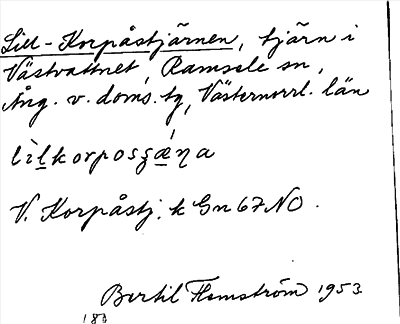 Lill-Korpåstjärnen, tjärn i
Västvattnet, Ramsele sn,
Ång. v. doms. tg, Västernorrl. län
lìlkorposʒǽŋa
V. Korpåstj. k Gn 67 NO.
Bertil Flemström 1953
183